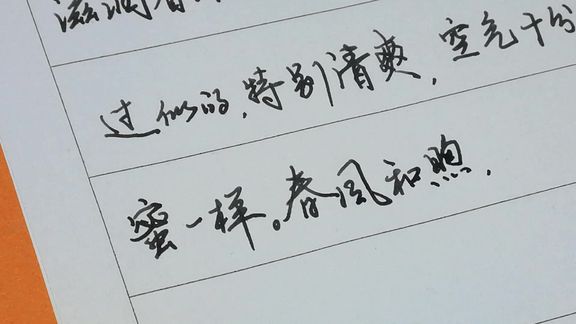 滋润着
过似的，特别清爽，空气十分
蜜一样。春风和煦，